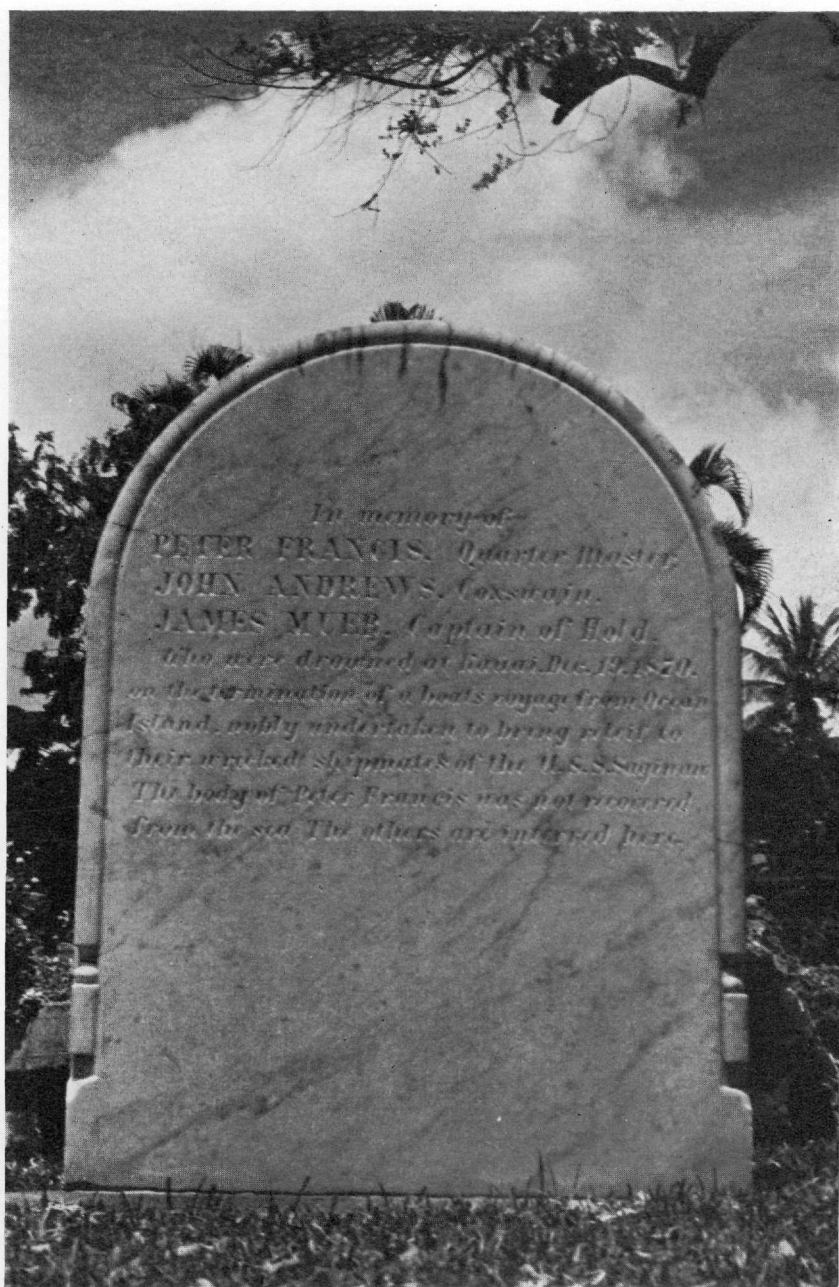 In memory of
PETER FRANCIS. Quarter Master.
JOHN ANDREWS. Coxswain.
JAMES MUER. Captain of Hold.
who were drowned at Kauai, Dec. 19. 1870.
on the termination of a boats voyage from Ocean
Island, nobly undertaken to bring relief to
their wrecked shipmates of the U.S.S. Saginaw
The body of Peter Francis was not recovered
from the sea The others are interred here.